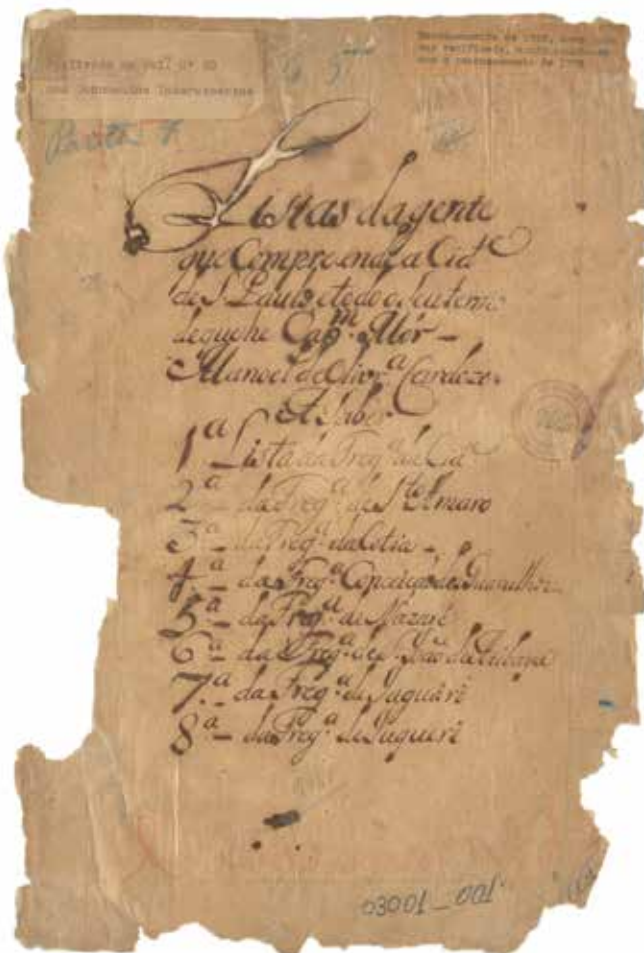 Retirado da
dos Interessantes
Listas da gente
que Comprende a Cid.e
de S. Paulo e todo o seu termo
de que he Cap.m Mór –
Manoel de Oliv.ra Cardozo
A Saber
1.a Lista da Freg.a da Cid.e
2.a – da Freg.a de S.to Amaro
3.a – da Freg.a da Cotia –
4.a – da Freg.a Conceição de Guarulhos
5.a – da Freg.a de Nazaré
6.a – da Freg.a de S. João da Atibaya
7.a da Freg.a de Jaguari
8.a – da Freg.a de Juqueri
03001_001